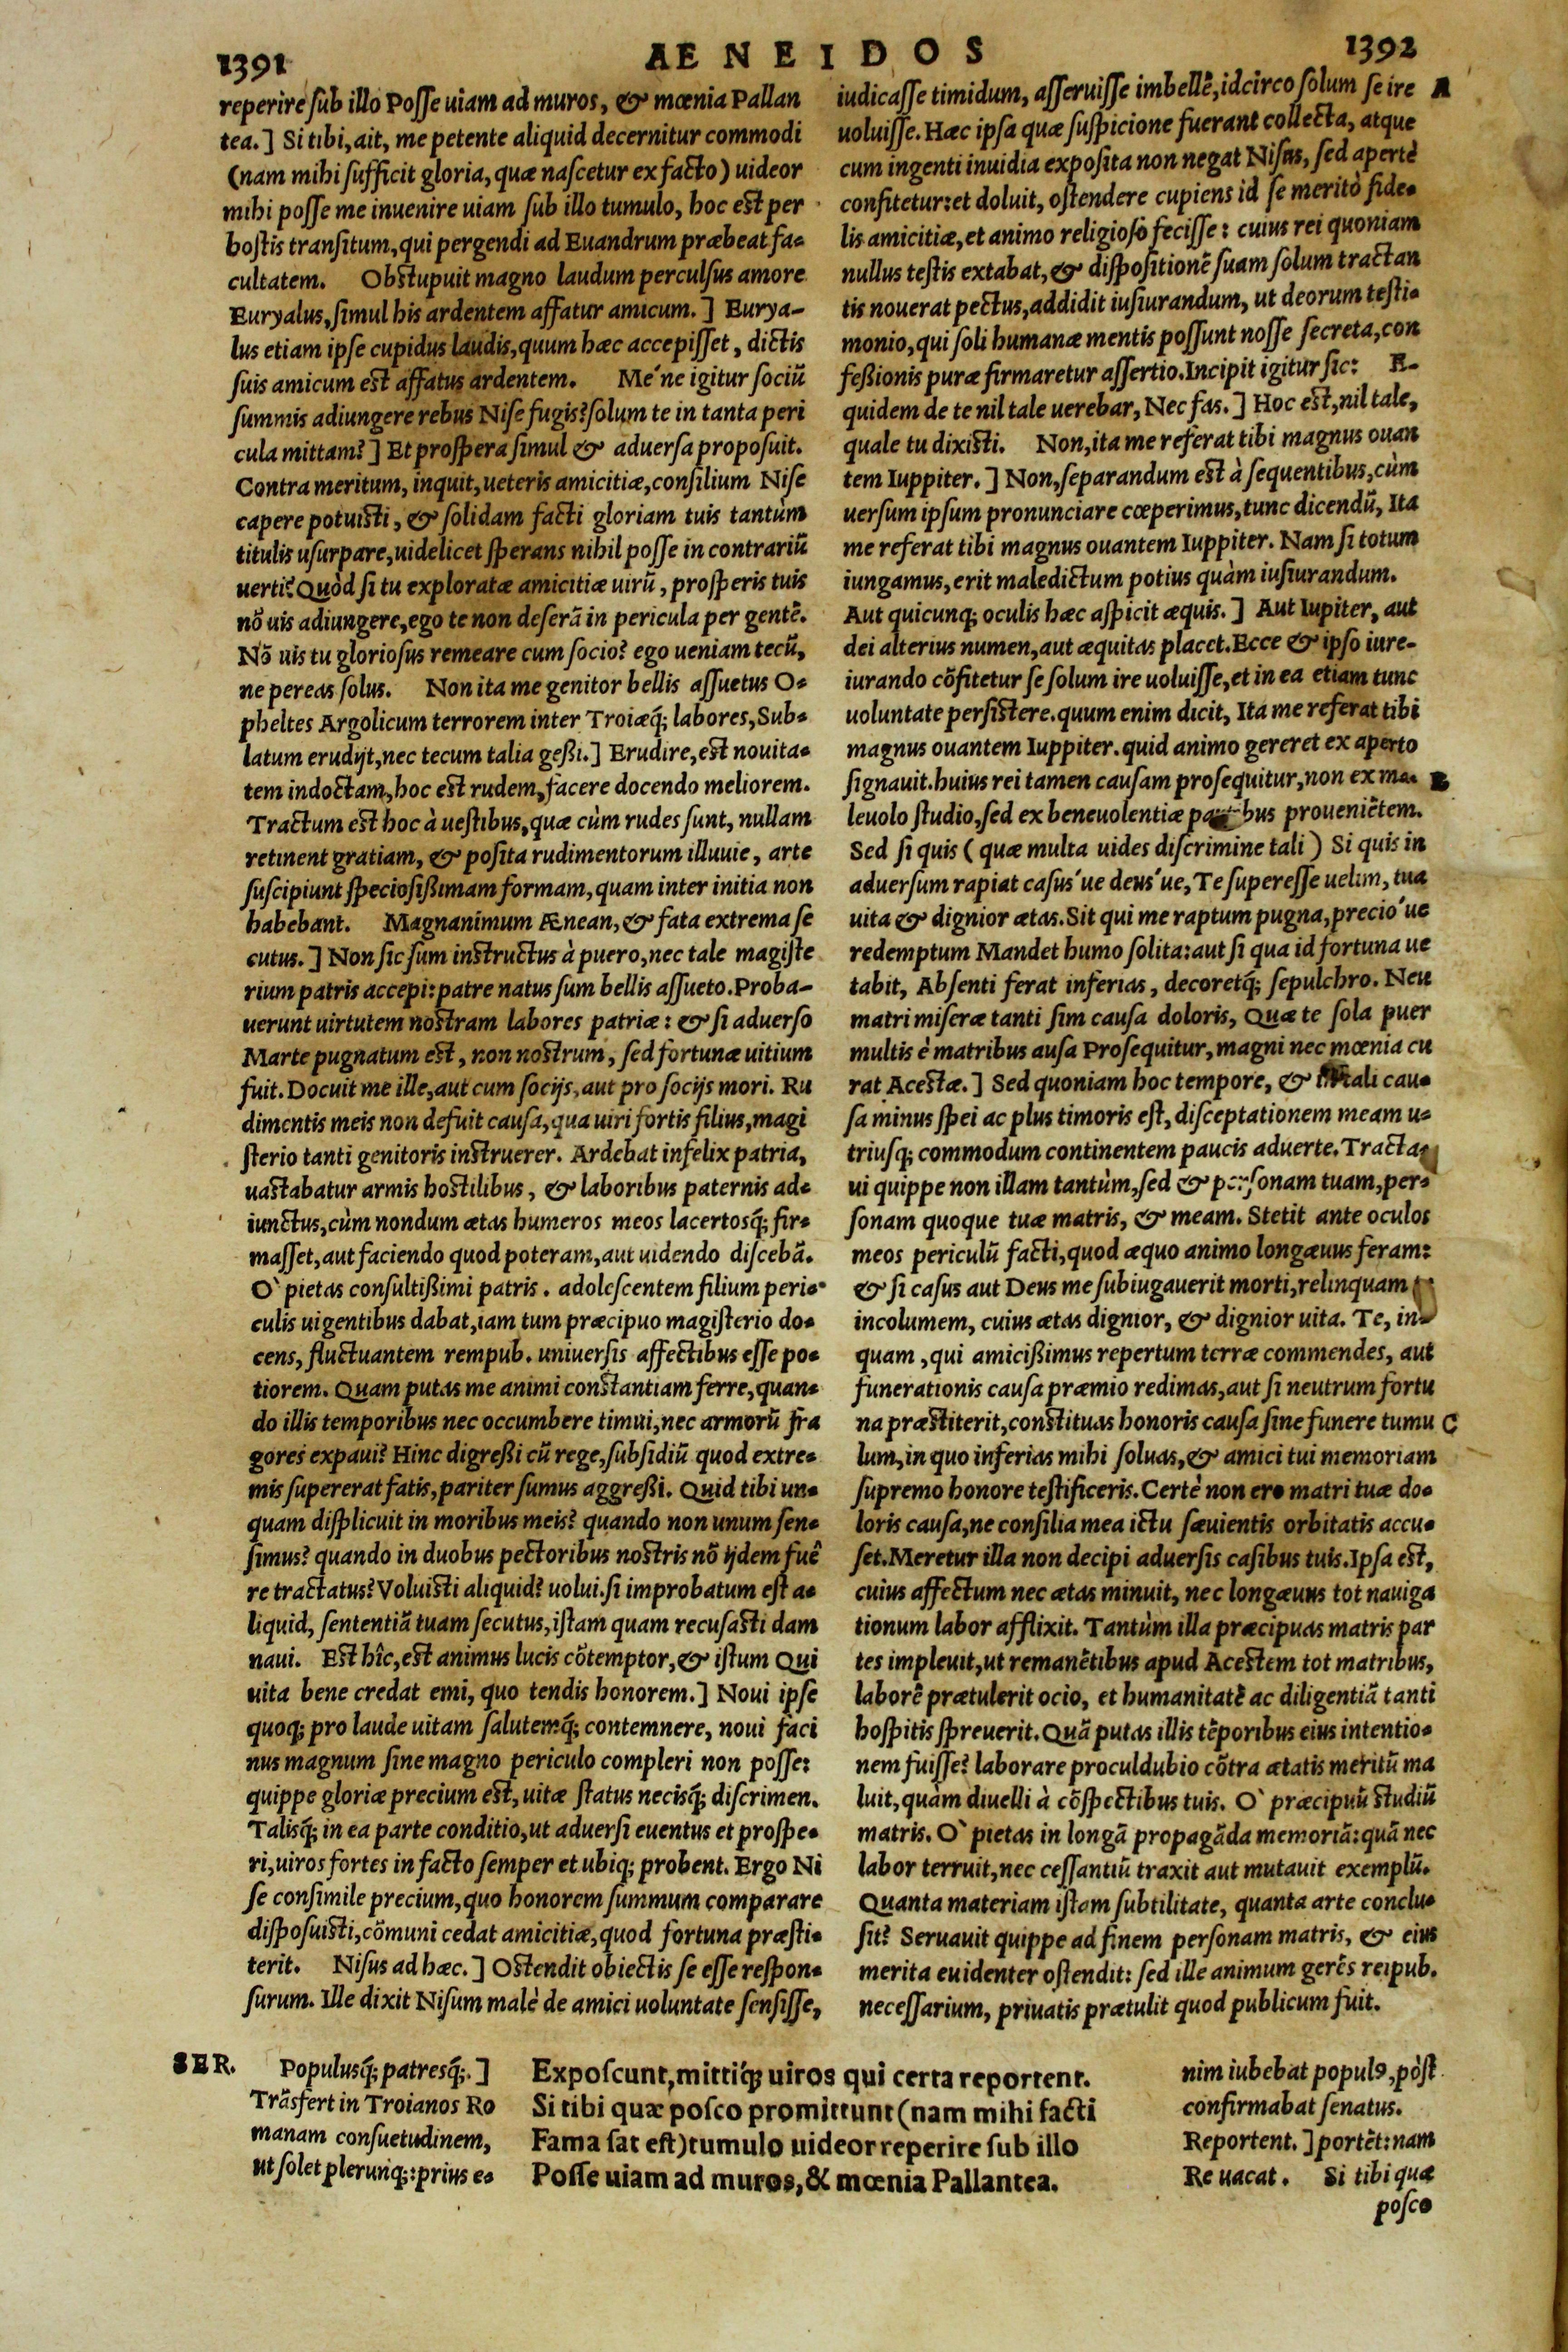 1391
AENEIDOS
1392
reperire sub illo Posse uiam ad muros, & mœnia Pallan
tea.] Si tibi, ait, me petente aliquid decernitur commodi
(nam mihi sufficit gloria, quæ nascetur ex facto) uideor
mihi posse me inuenire uiam sub illo tumulo, hoc est per
hostis transitum, qui pergendi ad Euandrum præbeat fa-
cultatem. Obstupuit magno laudum perculsus amore
Euryalus, simul his ardentem affatur amicum.] Eurya-
lus etiam ipse cupidus laudis, quum hæc accepisset, dictis
suis amicum est affatus ardentem. Me'ne igitur sociũ
summis adiungere rebus Nise fugis? solum te in tanta peri
cula mittam?] Et prospera simul & aduersa proposuit.
Contra meritum, inquit, ueteris amicitiæ, consilium Nise
capere potuisti, & solidam facti gloriam tuis tantùm
titulis usurpare, uidelicet sperans nihil posse in contrariũ
uerti? Quòd si tu exploratæ amicitiæ uirũ, prosperis tuis
nõ uis adiungere, ego te non deserã in pericula pergentẽ.
Nõ uis tu gloriosus remeare cum socio? ego ueniam tecũ,
ne pereas solus. Non ita me genitor bellis assuetus O-
pheltes Argolicum terrorem inter Troiæq́; labores, Sub-
latum erudijt, nec tecum talia geßi.] Erudire, est nouita-
tem indoctam, hoc est rudem, facere docendo meliorem.
Tractum est hoc à uestibus, quæ cùm rudes sunt, nullam
retinent gratiam, & posita rudimentorum illuuie, arte
suscipiunt speciosißimam formam, quam inter initia non
habebant. Magnanimum Ænean, & fata extrema se
cutus.] Non sic sum instructus à puero, nec tale magiste
rium patris accepi: patre natus sum bellis assueto. Proba-
uerunt uirtutem nostram labores patriæ: & si aduerso
Marte pugnatum est, non nostrum, sed fortunæ uitium
fuit. Docuit me ille, aut cum socijs, aut pro socijs mori. Ru
dimentis meis non defuit causa, qua uiri fortis filius, magi
sterio tanti genitoris instruerer. Ardebat infelix patria,
uastabatur armis hostilibus, & laboribus paternis ad-
iunctus, cùm nondum ætas humeros meos lacertosq́; fir-
masset, aut faciendo quod poteram, aut uidendo discebã.
O` pietas consultißimi patris. adolescentem filium peri-
culis uigentibus dabat, iam tum præcipuo magisterio do-
cens, fluctuantem rempub. uniuersis affectibus esse po-
tiorem. Quam putas me animi constantiam ferre, quan-
do illis temporibus nec occumbere timui, nec armorũ fra
gores expaui? Hinc digreßi cũ rege, subsidiũ quod extre-
mis supererat fatis, pariter sumus aggreßi. Quid tibi un-
quam displicuit in moribus meis? quando non unum sen-
simus? quando in duobus pectoribus nostris nõ ijdem fuê
re tractatus? Voluisti aliquid? uolui. si improbatum est a-
liquid, sententiã tuam secutus, istam quam recusasti dam
naui. Est hîc, est animus lucis cõtemptor, & istum Qui
uita bene credat emi, quo tendis honorem.] Noui ipse
quoq; pro laude uitam salutemq́; contemnere, noui faci
nus magnum sine magno periculo compleri non posse:
quippe gloriæ precium est, uitæ status necisq́; discrimen.
Talisq́; in ea parte conditio, ut aduersi euentus et prospe-
ri, uiros fortes in facto semper et ubiq; probent. Ergo Ni
se consimile precium, quo honorem summum comparare
disposuisti, cõmuni cedat amicitiæ, quod fortuna præsti-
terit. Nisus ad hæc.] Ostendit obiectis se esse respon-
surum. Ille dixit Nisum malè de amici uoluntate sensisse,
iudicasse timidum, asseruisse imbellẽ, idcirco solum se ire A
uoluisse. Hæc ipsa quæ suspicione fuerant collecta, atque
cum ingenti inuidia exposita non negat Nisus, sed apertè
confitetur: et doluit, ostendere cupiens id se meritò fide-
lis amicitiæ, et animo religioso fecisse: cuius rei quoniam
nullus testis extabat, & dispositionẽ suam solum tractan
tis nouerat pectus, addidit iusiurandum, ut deorum testi-
monio, qui soli humanæ mentis possunt nosse secreta, con
feßionis puræ firmaretur assertio. Incipit igitur sic: E-
quidem de te nil tale uerebar, Nec fas.] Hoc est, nil tale,
quale tu dixisti. Non, ita me referat tibi magnus ouan
tem Iuppiter.] Non, separandum est à sequentibus, cùm
uersum ipsum pronunciare cœperimus, tunc dicendũ, Ita
me referat tibi magnus ouantem Iuppiter. Nam si totum
iungamus, erit maledictum potius quàm iusiurandum.
Aut quicunq; oculis hæc aspicit æquis.] Aut Iupiter, aut
dei alterius numen, aut æquitas placet. Ecce & ipso iure-
iurando cõfitetur se solum ire uoluisse, et in ea etiam tunc
uoluntate persistere. quum enim dicit, Ita me referat tibi
magnus ouantem Iuppiter. quid animo gereret ex aperto
signauit. huius rei tamen causam prosequitur, non ex ma- B
leuolo studio, sed ex beneuolentiæ partibus proueniẽtem.
Sed si quis (quæ multa uides discrimine tali) Si quis in
aduersum rapiat casus'ue deus'ue, Te superesse uelim, tua
uita & dignior ætas. Sit qui me raptum pugna, precio'ue
redemptum Mandet humo solita: aut si qua id fortuna ue
tabit, Absenti ferat inferias, decoretq́; sepulchro. Neu
matri miseræ tanti sim causa doloris, Quæ te sola puer
multis è matribus ausa Prosequitur, magni nec mœnia cu
rat Acestæ.] Sed quoniam hoc tempore, & tali cau-
sa minus spei ac plus timoris est, disceptationem meam u-
triusq; commodum continentem paucis aduerte. Tracta-
ui quippe non illam tantùm, sed & personam tuam, per-
sonam quoque tuæ matris, & meam. Stetit ante oculos
meos periculũ facti, quod æquo animo longæuus feram:
& si casus aut Deus me subiugauerit morti, relinquam
incolumem, cuius ætas dignior, & dignior uita. Te, in-
quam, qui amicißimus repertum terræ commendes, aut
funerationis causa præmio redimas, aut si neutrum fortu
na præstiterit, constituas honoris causa sine funere tumu C
lum, in quo inferias mihi soluas, & amici tui memoriam
supremo honore testificeris. Certè non ero matri tuæ do-
loris causa, ne consilia mea ictu sæuientis orbitatis accu-
set. Meretur illa non decipi aduersis casibus tuis. Ipsa est,
cuius affectum nec ætas minuit, nec longæuus tot nauiga
tionum labor afflixit. Tantùm illa præcipuas matris par
tes impleuit, ut remanẽtibus apud Acestem tot matribus,
laborẽ prætulerit ocio, et humanitatẽ ac diligentiã tanti
hospitis spreuerit. Quã putas illis tẽporibus eius intentio-
nem fuisse? laborare proculdubio cõtra ætatis meritũ ma
luit, quàm diuelli à cõspectibus tuis. O` præcipuũ studiũ
matris. O` pietas in longã propagãda memoriã: quã nec
labor terruit, nec cessantiũ traxit aut mutauit exemplũ.
Quanta materiam istam subtilitate, quanta arte conclu-
sit? Seruauit quippe ad finem personam matris, & eius
merita euidenter ostendit: sed ille animum gerẽs reipub.
necessarium, priuatis prætulit quod publicum fuit.
SER. Populusq́; patresq́;.]
Trãsfert in Troianos Ro
manam consuetudinem,
ut solet plerunq;: prius e-
Exposcunt, mittíq; uiros qui certa reportent.
Si tibi quæ posco promittunt (nam mihi facti
Fama sat est) tumulo uideor reperire sub illo
Posse uiam ad muros, & mœnia Pallantea.
nim iubebat populꝰ, pòst
confirmabat senatus.
Reportent.] portẽt: nam
Re uacat. Si tibi quæ
posco